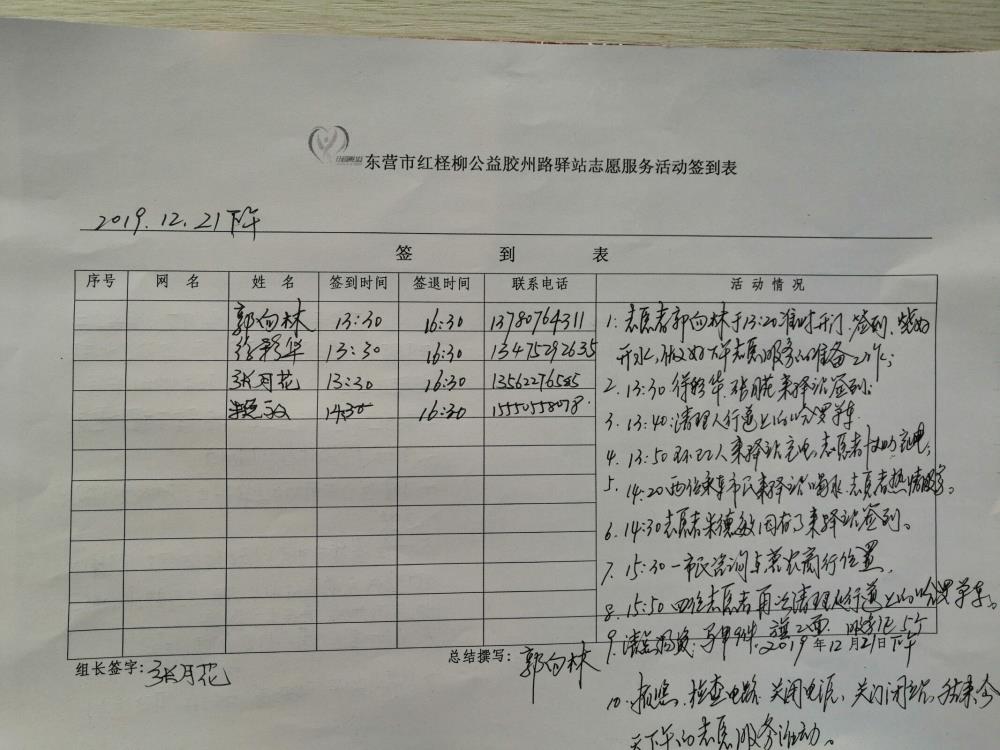 东营市红柽柳公益胶州路驿站志愿服务活动签到表
2019.12.21下午
签 到 表
序号 网 名 姓 名 签到时间 签退时间 联系电话 活 动 情 况
郭向林 13:30 16:30 13780764311
徐彩华 13:30 16:30 13475292635
张月花 13:30 16:30
14:30 16:30 15550558078
1. 志愿者郭向林于13:20准时开门、签到、烧好
开水,做好下午志愿服务的准备工作;
2. 13:30 徐彩华、张月花来驿站签到;
3. 13:40 清理人行道上的哈罗单车
4. 13:50 环卫工人来驿站充电,志愿者帮助充电;
5. 14:20 两位来车市民来驿站喝水,志愿者热情服务。
6. 14:30 志愿者米德敏因有事来驿站签到。
7. 15:30 一市民咨询与莱农商行位置
8. 15:50 四位志愿者再次清理人行道上的哈罗单车。
9. 清点 马甲9件、旗2面、 5个
2019年12月21日下午
10. 拍照、检查电路、关闭电源、关门闭站,结束今
天下午的志愿服务活动。
组长签字:张月花
总结撰写:郭向林